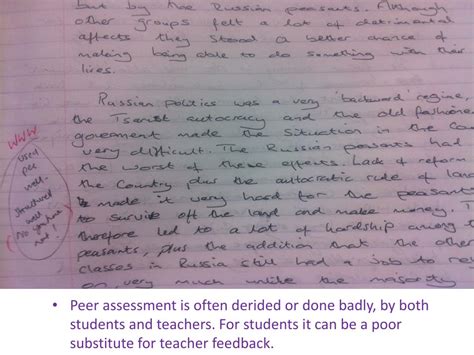 but by the Russian peasants. Although
other groups felt a lot of detrimental
affects they stood a better chance of
making being able to do something with their
lives.
Russian politics was a very 'backward' regime,
the Tsarist autocracy and the old fashione
goverment made the situation in the Cou
very difficult. The Russian peasants had
the worst of these effects. Lack of reform
the Country plus the autocratic rule of land
made it very hard for the peasant
to survive off the land and make money. T
therefore led to a lot of hardship among t
peasants, plus the addition that the other
classes in Russia still had a job to re
on, very much unlike the majority
WWW
Used
PEE
well-
structured
not!
• Peer assessment is often derided or done badly, by both
students and teachers. For students it can be a poor
substitute for teacher feedback.